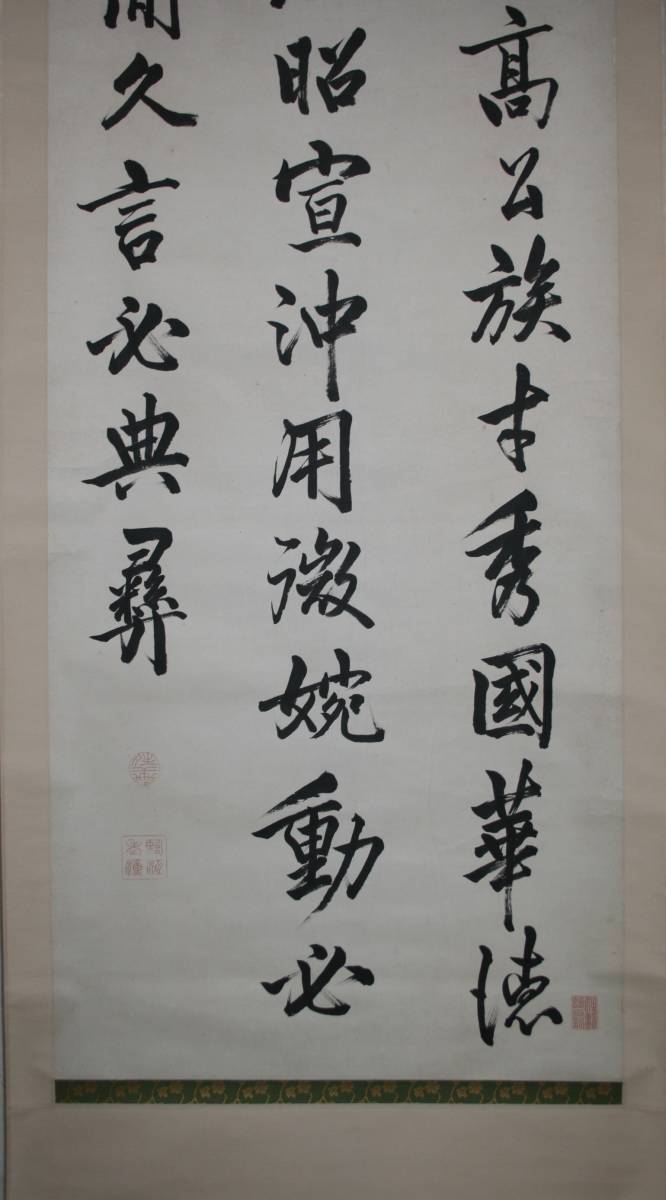 高公族才秀國華德
昭宣沖用微婉動必
閒久言必典彝